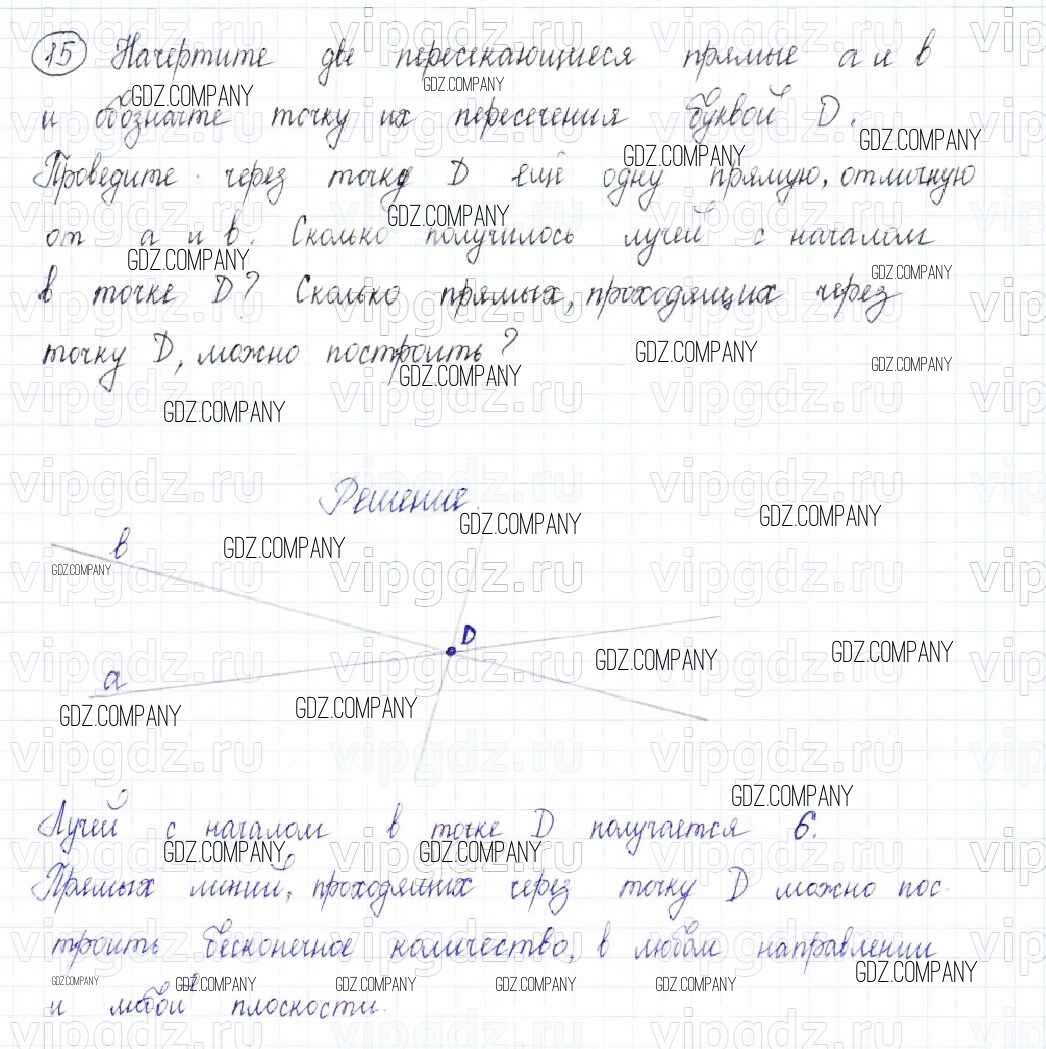 15 Начертите две пересекающиеся прямые а и в
и обозначте точку их пересечения буквой D.
Проведите через точку D ещё одну прямую, отличную
от а и в. Сколько получилось лучей с началом
в точке D? Сколько прямых, проходящих через
точку D, можно построить?
Решение.
в
D
а
Лучей с началом в точке D получается 6.
Прямых линий, проходящих через точку D можно пос-
троить бесконечное количество, в любом направлении
и любой плоскости.
vipgdz.ru
GDZ.COMPANY